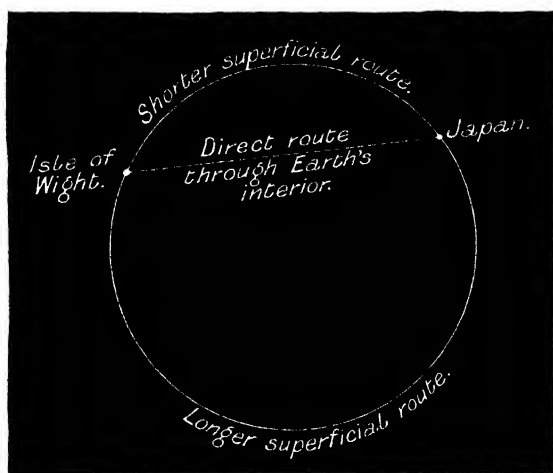 Shorter superficial route.
Isle of
Wight.
Direct route
through Earth's
interior.
Japan.
Longer superficial route.